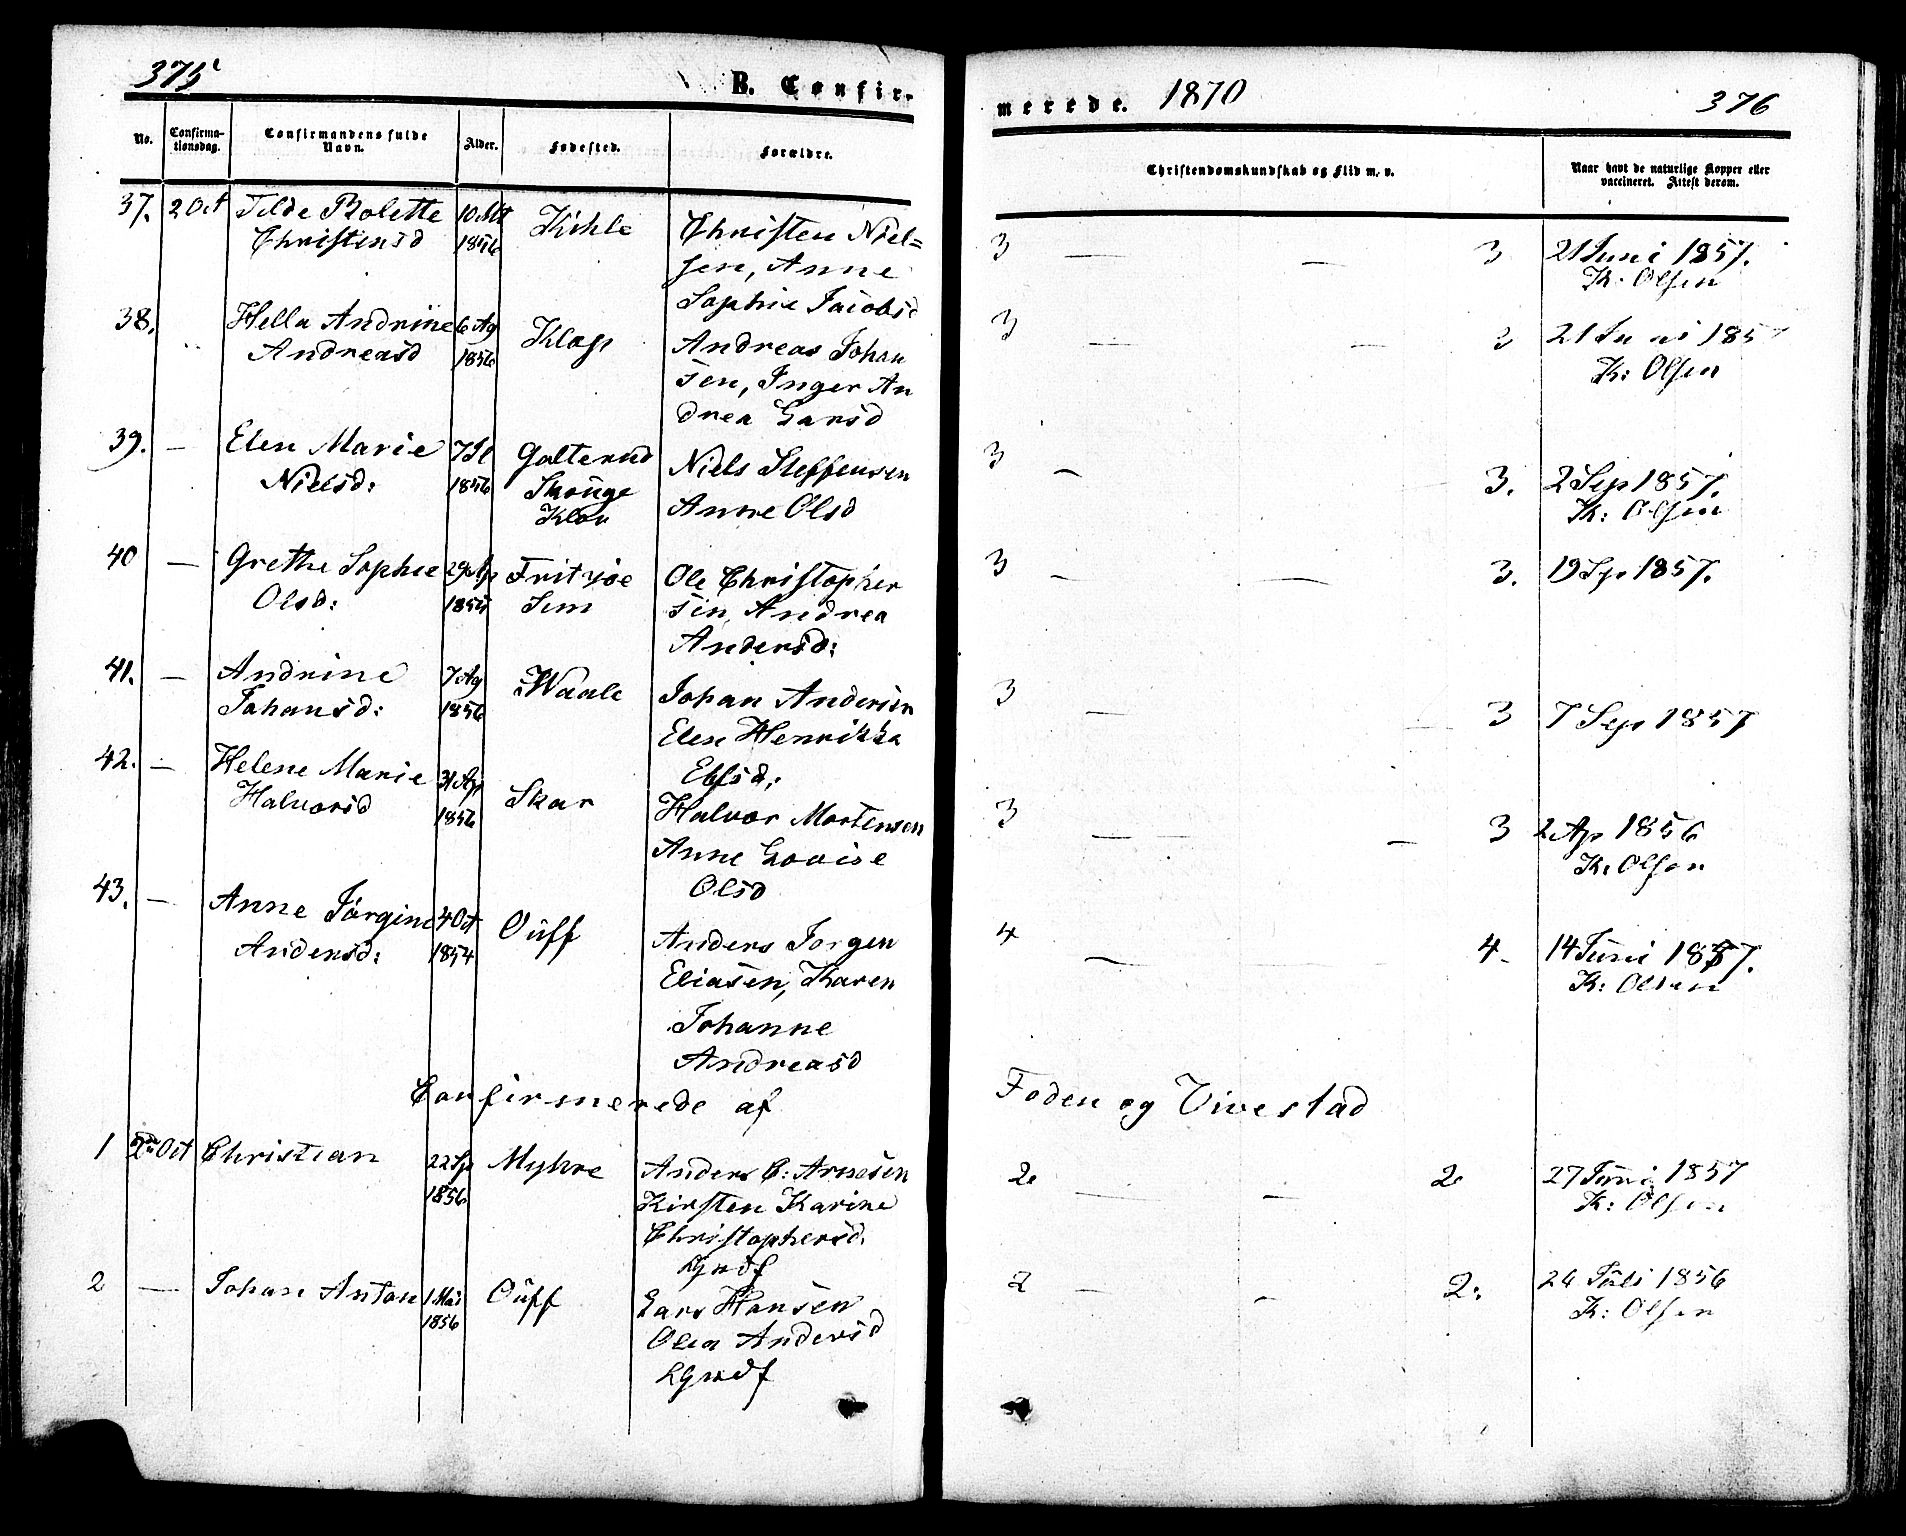 375
B. Confir-
No.
Confirma-
tionsdag.
Confirmandens fulde
Navn.
Alder.
Fødested.
Forældre.
37. 2 Oct Tilde Bolette 10 Mt Kihle Christen Niel=
Christensd 1856 sen, Anne
Sophie Jacobsd
38. Hella Andrine 6 Ag Klop Andreas Johan
Andreasd 1856 sen, Inger An
drea Larsd
39. — Elen Marie 7 Jl Galterud Niels Steffensen
Nielsd: 1856 Skouge Anne Olsd
40 — Grethe Sophie 29 Ap Fritzøe Ole Christopher
Olsd: Sem sen, Andrea
Andersd:
41. — Andrine 7 Ag Waale Johan Andersen
Johansd: 1856 Elen Henrikka
42. — Helene Marie 31 Skar Halvor Mortensen
Halvorsd 1856 Anne Lovise
Olsd
43. — Anne Jörgine 4 Oct Oüff Anders Jorgen
Andersd: 1854 Eliasen, Karen
Johanne
Andreasd
Confirmerede af
1 2 Oct Christian 22 Sp Myhre Anders C: Arnesen
1856 Kirsten Karine
Christophersd.
Lgndf
2 — Johan Anton 1 Mai Oüff Lars Hansen
1856 Olea Andersd
Lgndf
merede. 1870
376
Christendomskundskab og Flid m. v.
Naar havt de naturlige Kopper eller
vaccineret. Attest derom.
3 — — 3 21 Juni 1857.
K: Olsen
3 — — 3 21 Juni 185
K: Olsen
3 — 3. 2 Sep 1857.
K: Olsen
3 — — 3. 19 Sp 1857.
3 — 3 7 Sep 1857
3 — — 3 2 Ap 1856
K. Olsen
4 — 4- 14 Juni 1857.
K: Olsen
Foden og Vivestad
2 — — 2 27 Juni 1857
K: Olsen
2 — — 2: 24 Juli 1856
K: Olsen